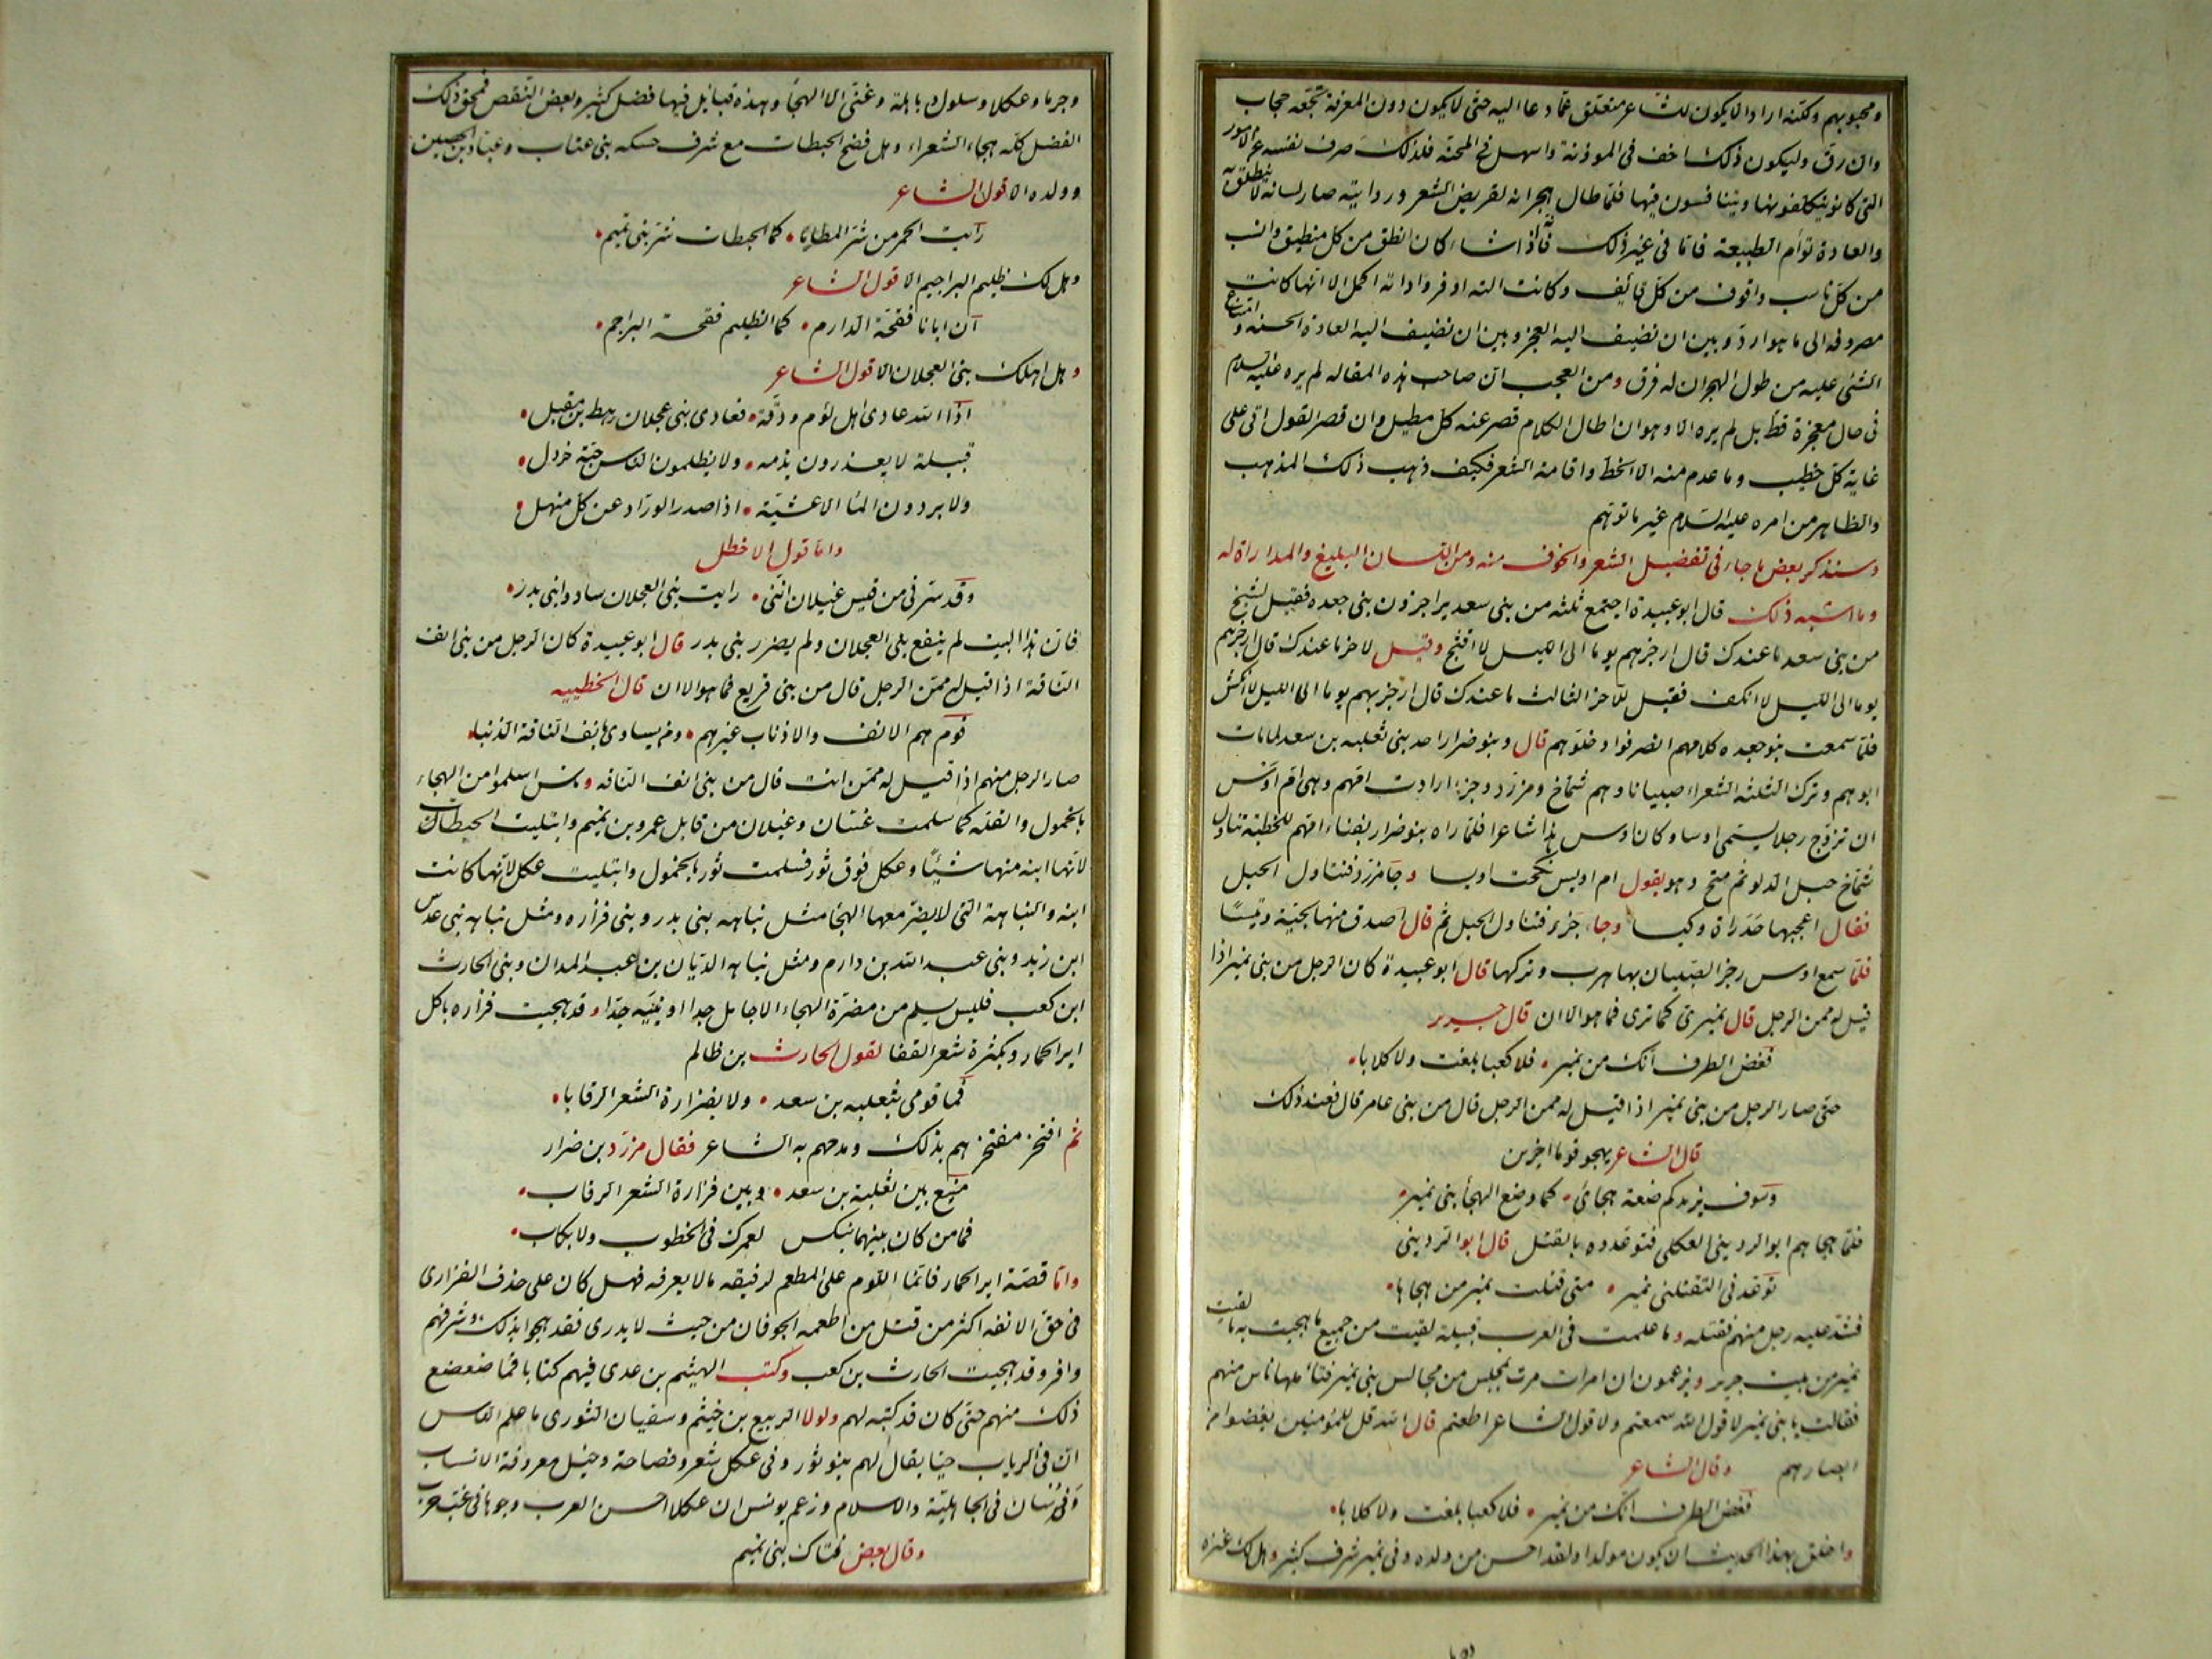 ومحبوبهم ولكنه اراد الا يكون للشاعر متعلق عما دعا اليه حتى لا يكون دون المعرفة بحقه حجاب
وان رق وليكون ذلك اخف فى الموذنة واسهل فى المحنة فلذلك صرف نفسه عن الامور
التى كانوا يتكلفونها ويتنافسون فيها فلما طال هجرانه لقريض الشعر وروايته صار لسانه لا ينطلق به
والعادة توأم الطبيعة فاما فى غير ذلك فانه اذا شاء كان انطق من كل منطيق وانسب
من كل ناسب واقوف من كل قائف وكانت الته اوفر واداته اكمل الا انها كانت
مصروفه الى ما هو ارد وبين ان نضيف اليه العجز وبين ان نضيف اليه العادة الحسنه وامتناع
الشئ عليه من طول الهجران له فرق ومن العجب ان صاحب هذه المقاله لم يره عليه السلام
فى حال معجزة قط بل لم يره الا وهو ان اطال الكلام قصر عنه كل مطيل وان قصر القول اتى على
غاية كل خطيب وما عدم منه الا الخط واقامة الشعر فكيف ذهب ذلك المذهب
والظاهر من امره عليه السلام غير ما توهم
وسنذكر بعض ما جاء فى تفضيل الشعر والخوف منه ومن اللسان البليغ والمداراة له
وما اشبه ذلك قال ابو عبيدة اجتمع ثلثه من بنى سعد يراجزون بنى جعده فقيل لشيخ
من بنى سعد ما عندك قال ارجزهم يوما الى الليل لا افثج وقيل لاخر ما عندك قال ارجزهم
يوما الى الليل لا انكف فقيل للاخر الثالث ما عندك قال ارجز بهم يوما الى الليل لا انكش
فلما سمعت بنو جعده كلامهم انصرفوا وخلوهم قال وبنو ضرار احد بنى ثعلبه بن سعد لما مات
ابوهم وترك الثلثه الشعراء صبيانا وهم شماخ ومزرد وجزء ارادت امهم وهى ام اوس
ان تزوج رجلا يسمى اوسا وكان اوس هذا شاعرا فلما راه بنو ضرار بفناء امهم للخطبة تناول
شماخ حبل الدلو ثم متح وهو يقول ام اويس نكحت اويسا وجا مزرد فتناول الحبل
فقال اعجبها حدراة وكيسا وجاء جزء فتناول الحبل ثم قال اصدق منها لجبة وتيسا
فلما سمع اوس رجز الصبيان بها هرب وتركها قال ابو عبيدة كان الرجل من بنى نمير اذا
قيل له ممن الرجل قال نميرى كما ترى فما هو الا ان قال جرير
فغض الطرف انك من نمير • فلا كعبا بلغت ولا كلابا •
حتى صار الرجل من بنى نمير اذا قيل له ممن الرجل قال من بنى عامر قال فعند ذلك
قال الشاعر يهجو قوما اخرين
وسوف يزيدكم ضعة هجائى • كما وضع الهجاء بنى نمير •
فلما هجاهم ابو الردينى العكلى فتوعدوه بالقتل قال ابو الردينى
توعدنى لتقتلنى نمير • متى قتلت نمير من هجاها •
فشد عليه رجل منهم فقتله وما علمت فى العرب قبيلة لقيت من جميع ما هجيت به ما لقيت
نمير من بيت جرير ويزعمون ان امرات مرت بمجلس من مجالس بنى نمير فتاملها ناس منهم
فقالت يا بنى نمير لا قول الله سمعتم ولا قول الشاعر اطعتم قال الله قل للمؤمنين يغضوا من
ابصارهم وقال الشاعر
فغض الطرف انك من نمير • فلا كعبا بلغت ولا كلابا •
واخلق بهذا الحديث ان يكون مولدا ولقد احسن من ولده وفى نمير شرف كثير وهل اهلك عنزه
وجرما وعكلا وسلول وباهلة وغنى الا الهجا وهذه قبائل فيها فضل كثير وبعض النقص فمحق ذلك
الفضل كله هجاء الشعراء وهل فضح الحبطات مع شرف حسكه بنى عتاب وعباد بن الحصين
وولده الا قول الشاعر
رايت الحمر من شر المطايا • كما الحبطات شر بنى تميم •
وهل اهلك ظليم البراجيم الا قول الشاعر
ان ابانا فقحة لدارم • كما الظليم فقحة البراجم •
وهل اهلك بنى العجلان الا قول الشاعر
اذا الله عادى اهل لؤم ودقة • فعادى بنى عجلان رهط بن مقبل •
قبيلة لا يعذرون بذمه • ولا يظلمون الناس حبة خردل •
ولا يردون الماء الا عشية • اذا صدر الوراد عن كل منهل •
واما قول الاخطل
وقد سرنى من قيس غيلان اننى • رايت بنى العجلان سادوا بنى بدر •
فان هذا البيت لم ينفع بنى العجلان ولم يضرر بنى بدر قال ابو عبيدة كان الرجل من بنى انف
الناقة اذا قيل له ممن الرجل قال من بنى قريع فما هو الا ان قال الحطيئه
قوم هم الانف والاذناب غيرهم • ومن يساوى بانف الناقة الذنبا •
صار الرجل منهم اذا قيل له ممن انت قال من بنى انف الناقه وناس اسلموا من الهجاء
بالخمول والقله كما سلمت غسان وغيلان من قابل عمرو بن تميم وابتليت الحبطات
لانها ابنه منها شيئا وعكل فوق ثور فسلمت ثور بالخمول وابتليت عكل لانها كانت
ابنه والنباهة التى لا يضر معها الهجا مثل نباهه بنى بدر وبنى فزاره ومثل نباهه بنى عدس
ابن زيد وبنى عبد الله بن دارم ومثل نباهه الديان بن عبد المدان وبنى الحارث
ابن كعب فليس يسلم من مضرة الهجاء الا خامل جدا او نبيه جدا وقد هجيت فزاره باكل
اير الحمار وبكثرة شعر القفا لقول الحارث بن ظالم
فما قومى بثعلبه بن سعد • ولا بفزارة الشعر الرقابا •
ثم افتخر مفتخرهم بذلك ومدحهم به الشاعر فقال مزرد بن ضرار
منيع بين ثعلبة بن سعد • وبين فزارة الشعر الرقاب •
فما من كان بينهما بنكس لعمرك فى الخطوب ولا بكاب •
واما قصة اير الحمار فانما اللوم على المطعم لرفيقه ما لا يعرفه فهل كان على حذف الفزارى
فى حق الانفه اكثر من قتل من اطعمه الجوفان من حيث لا يدرى فقد هجوا بذلك وشرفهم
وافر وقد هجيت الحارث بن كعب وكتب الهيثم بن عدى فيهم كتابا فما ضعضع
ذلك منهم حتى كان قد كتبه لهم ولولا الربيع بن خيثم وسفيان الثورى ما علم الناس
ان فى الرباب حيا يقال لهم بنو ثور وفى عكل شعر وفصاحة وخيل معروفة الانساب
وفرسان فى الجاهلية والاسلام وزعم يونس ان عكلا احسن العرب وجوها فى غب حرب
وقال بعض فتاك بنى تميم